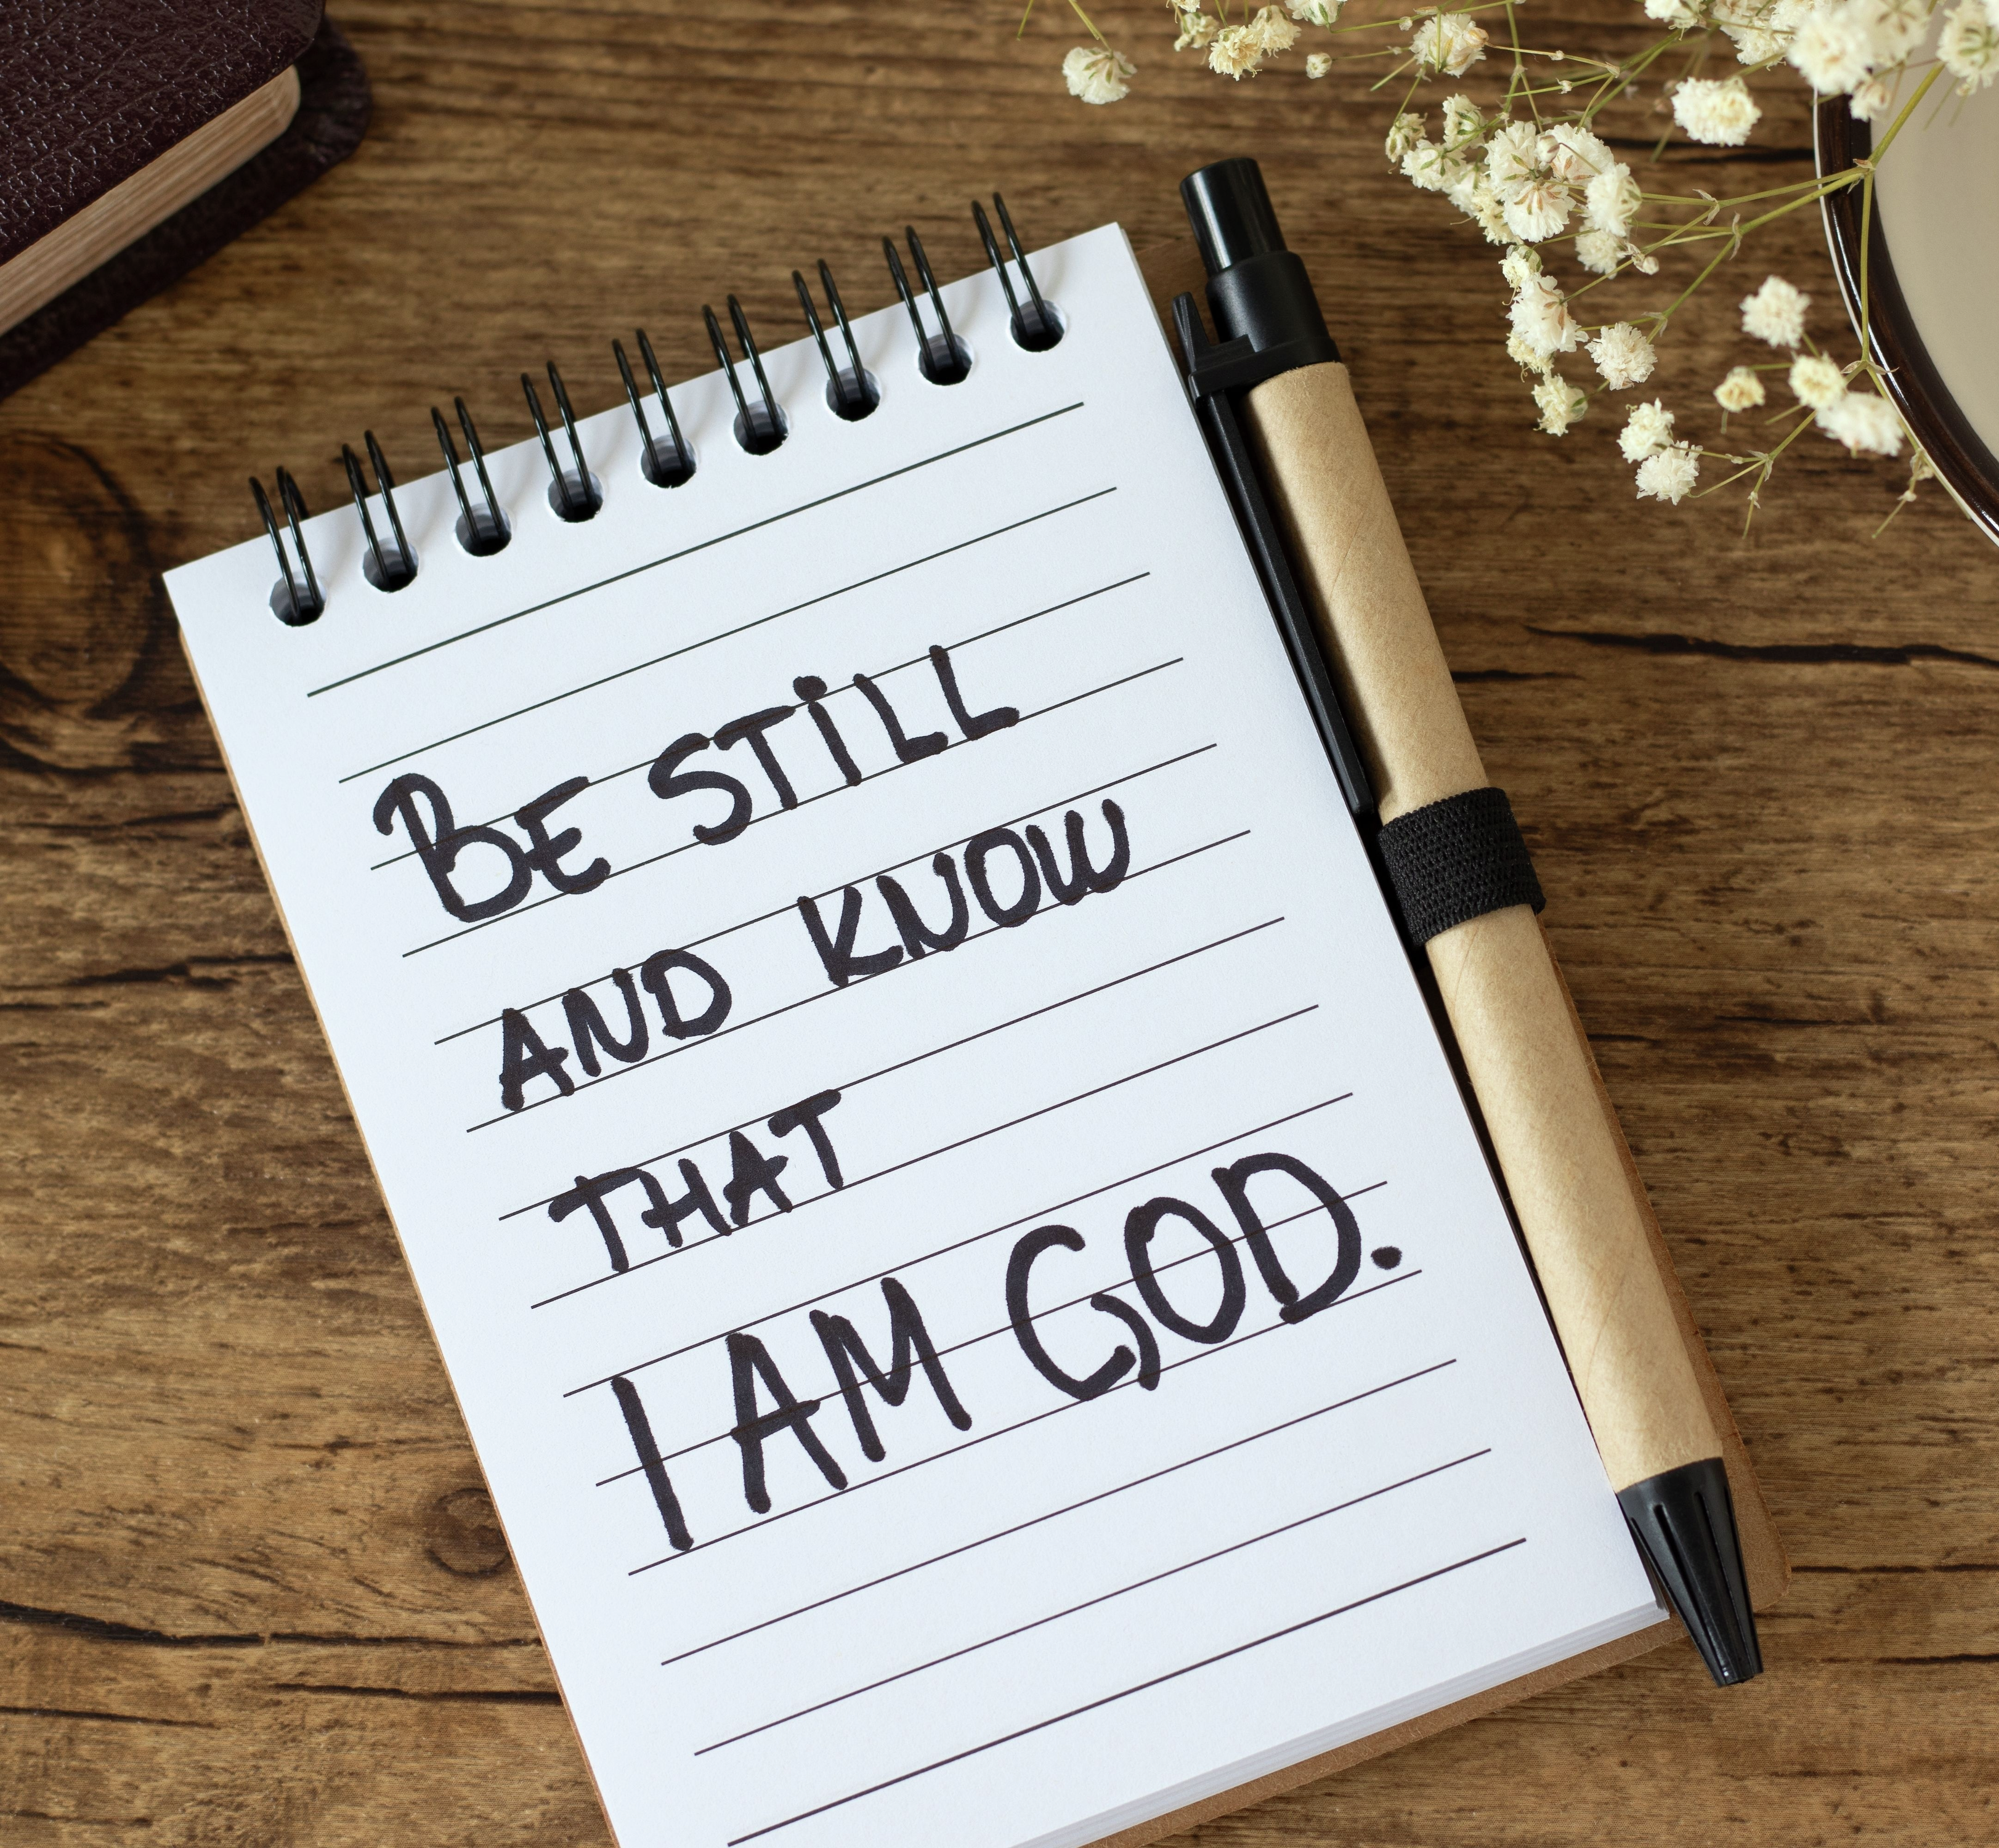 BE STiLL
AND KNOW
THAT
I AM GOD.